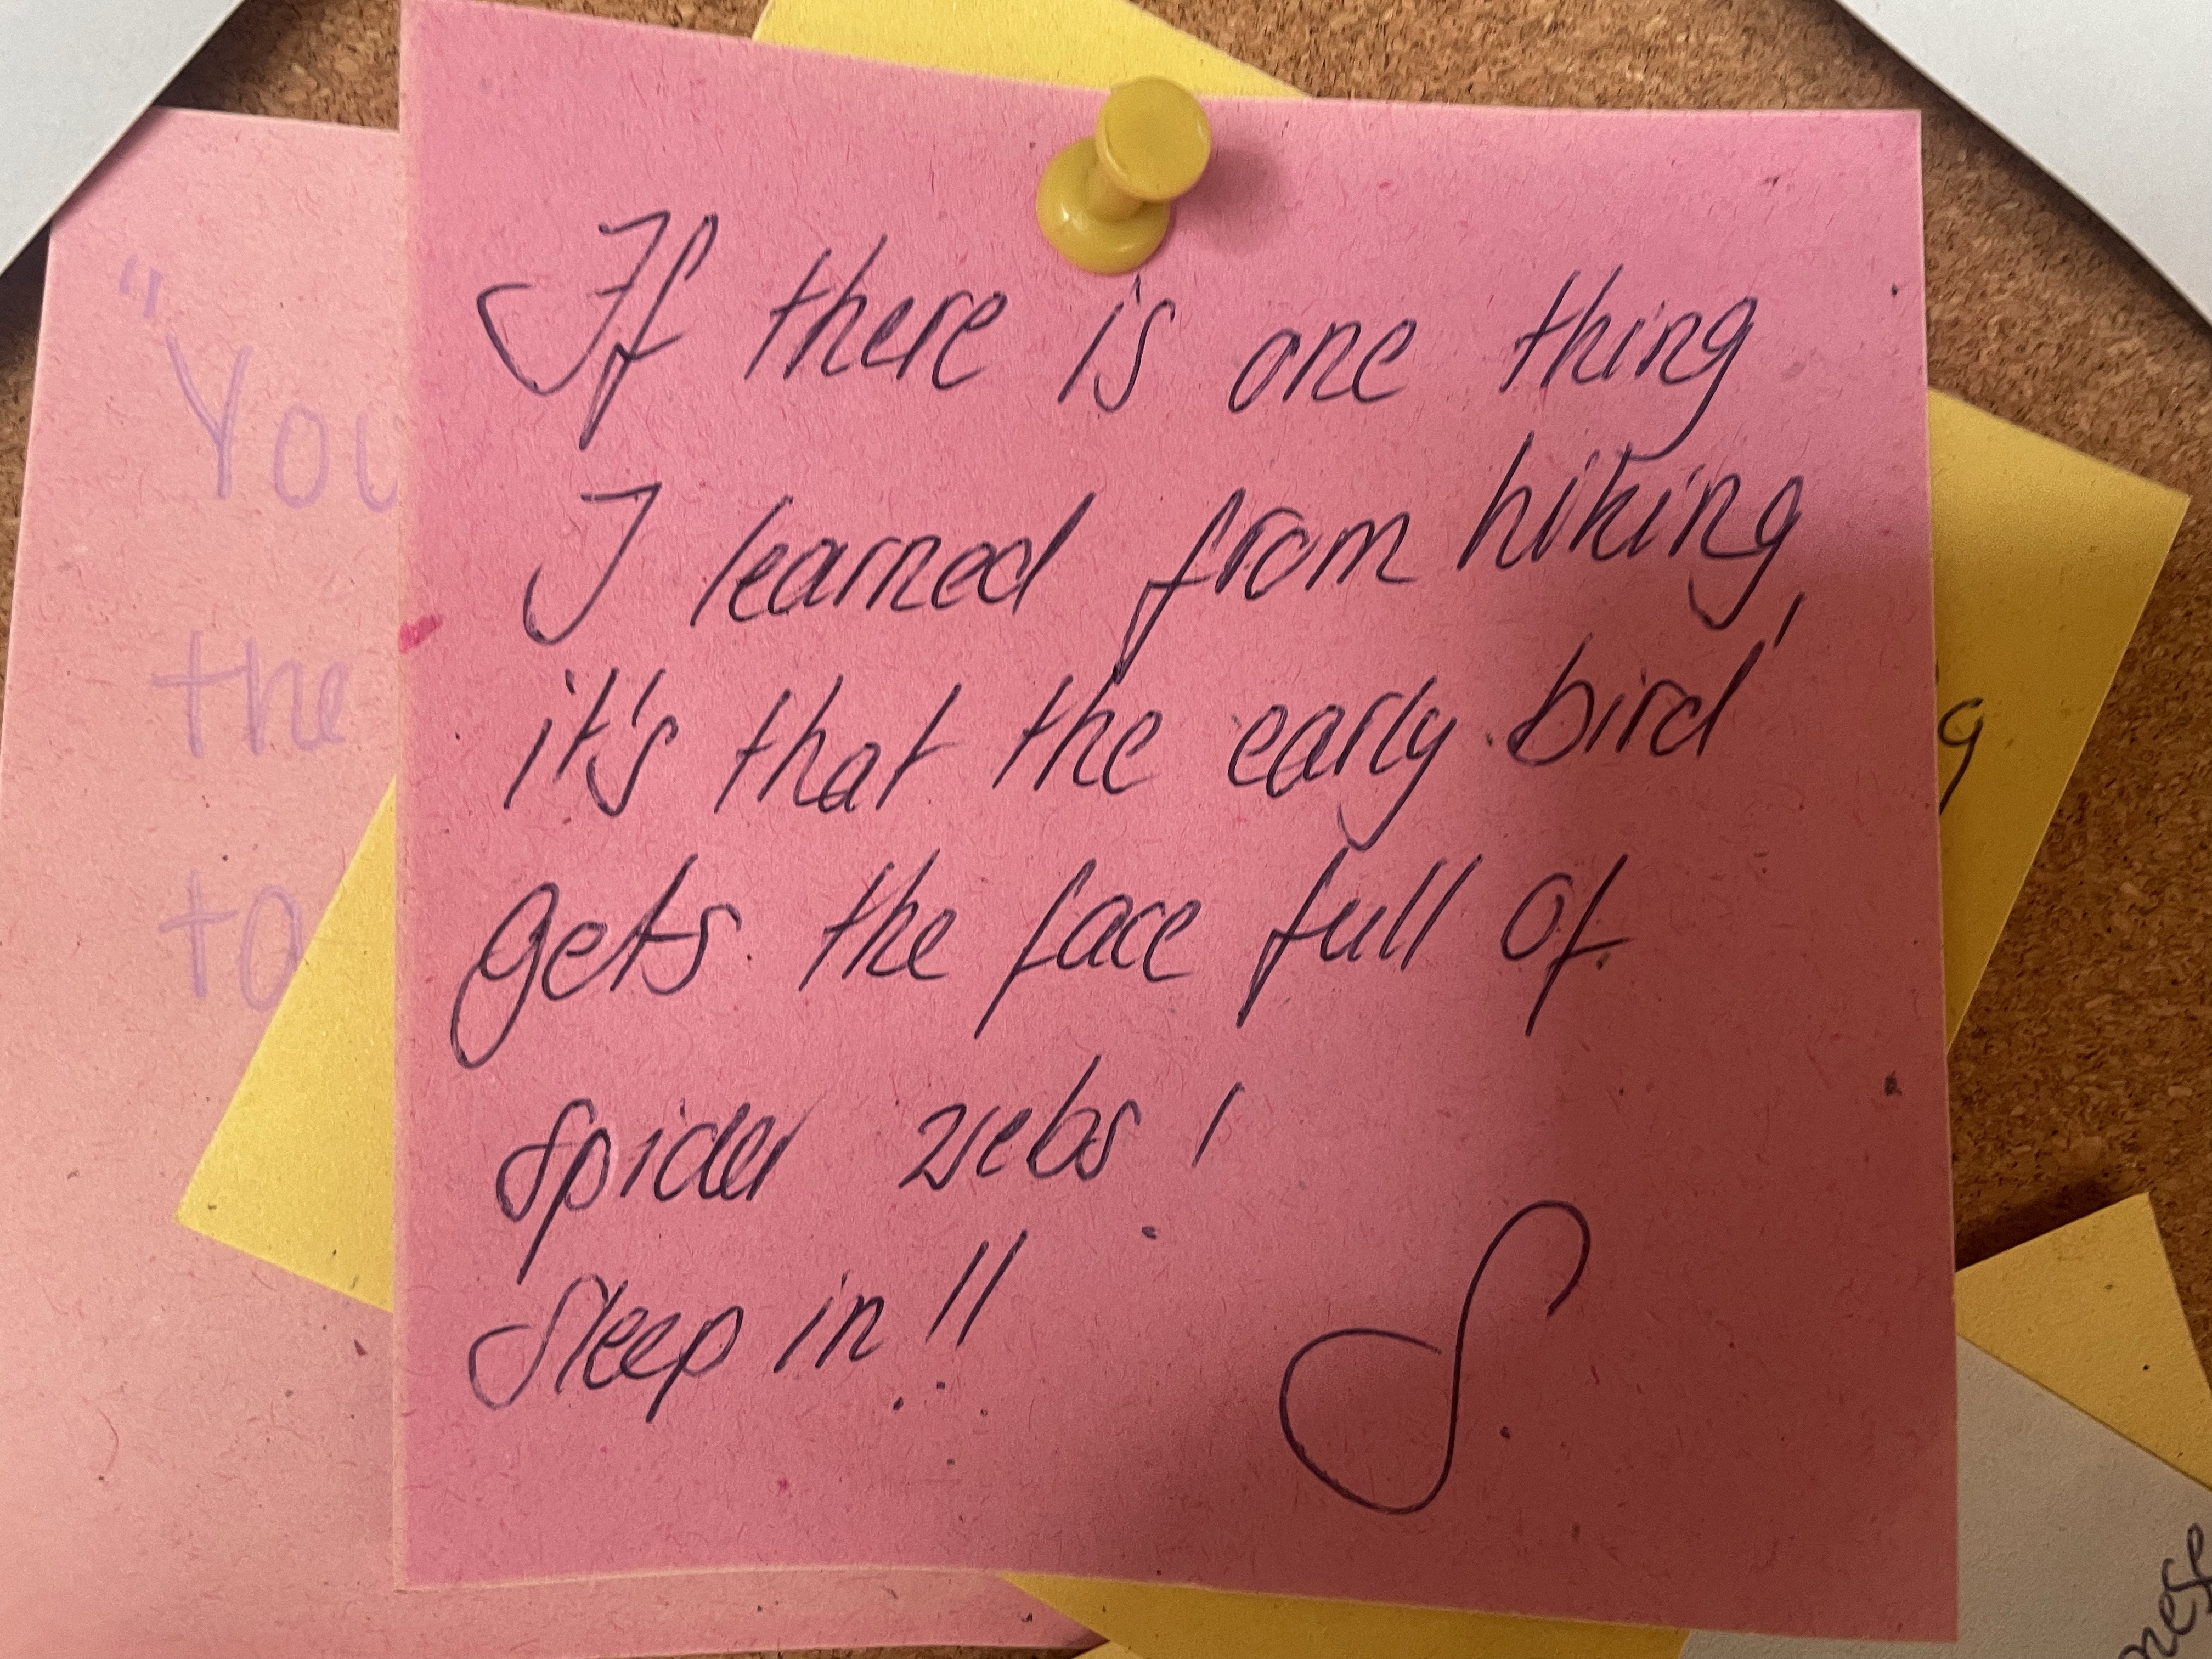 If there is one thing
I learned from hiking,
it's that the early bird
gets the face full of
spider webs!
Sleep in!!
S.
"You
the
to
g